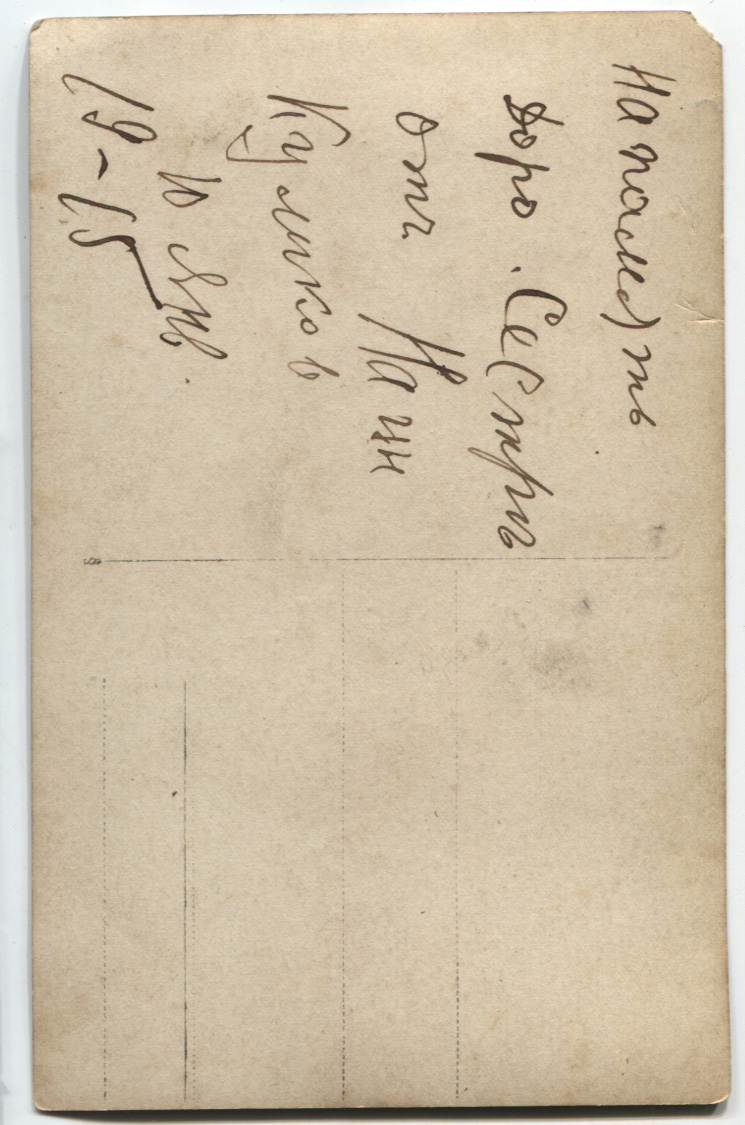 На память
Доро. Сестрь
отъ Нащ
Куликов
10 Янв.
19-15